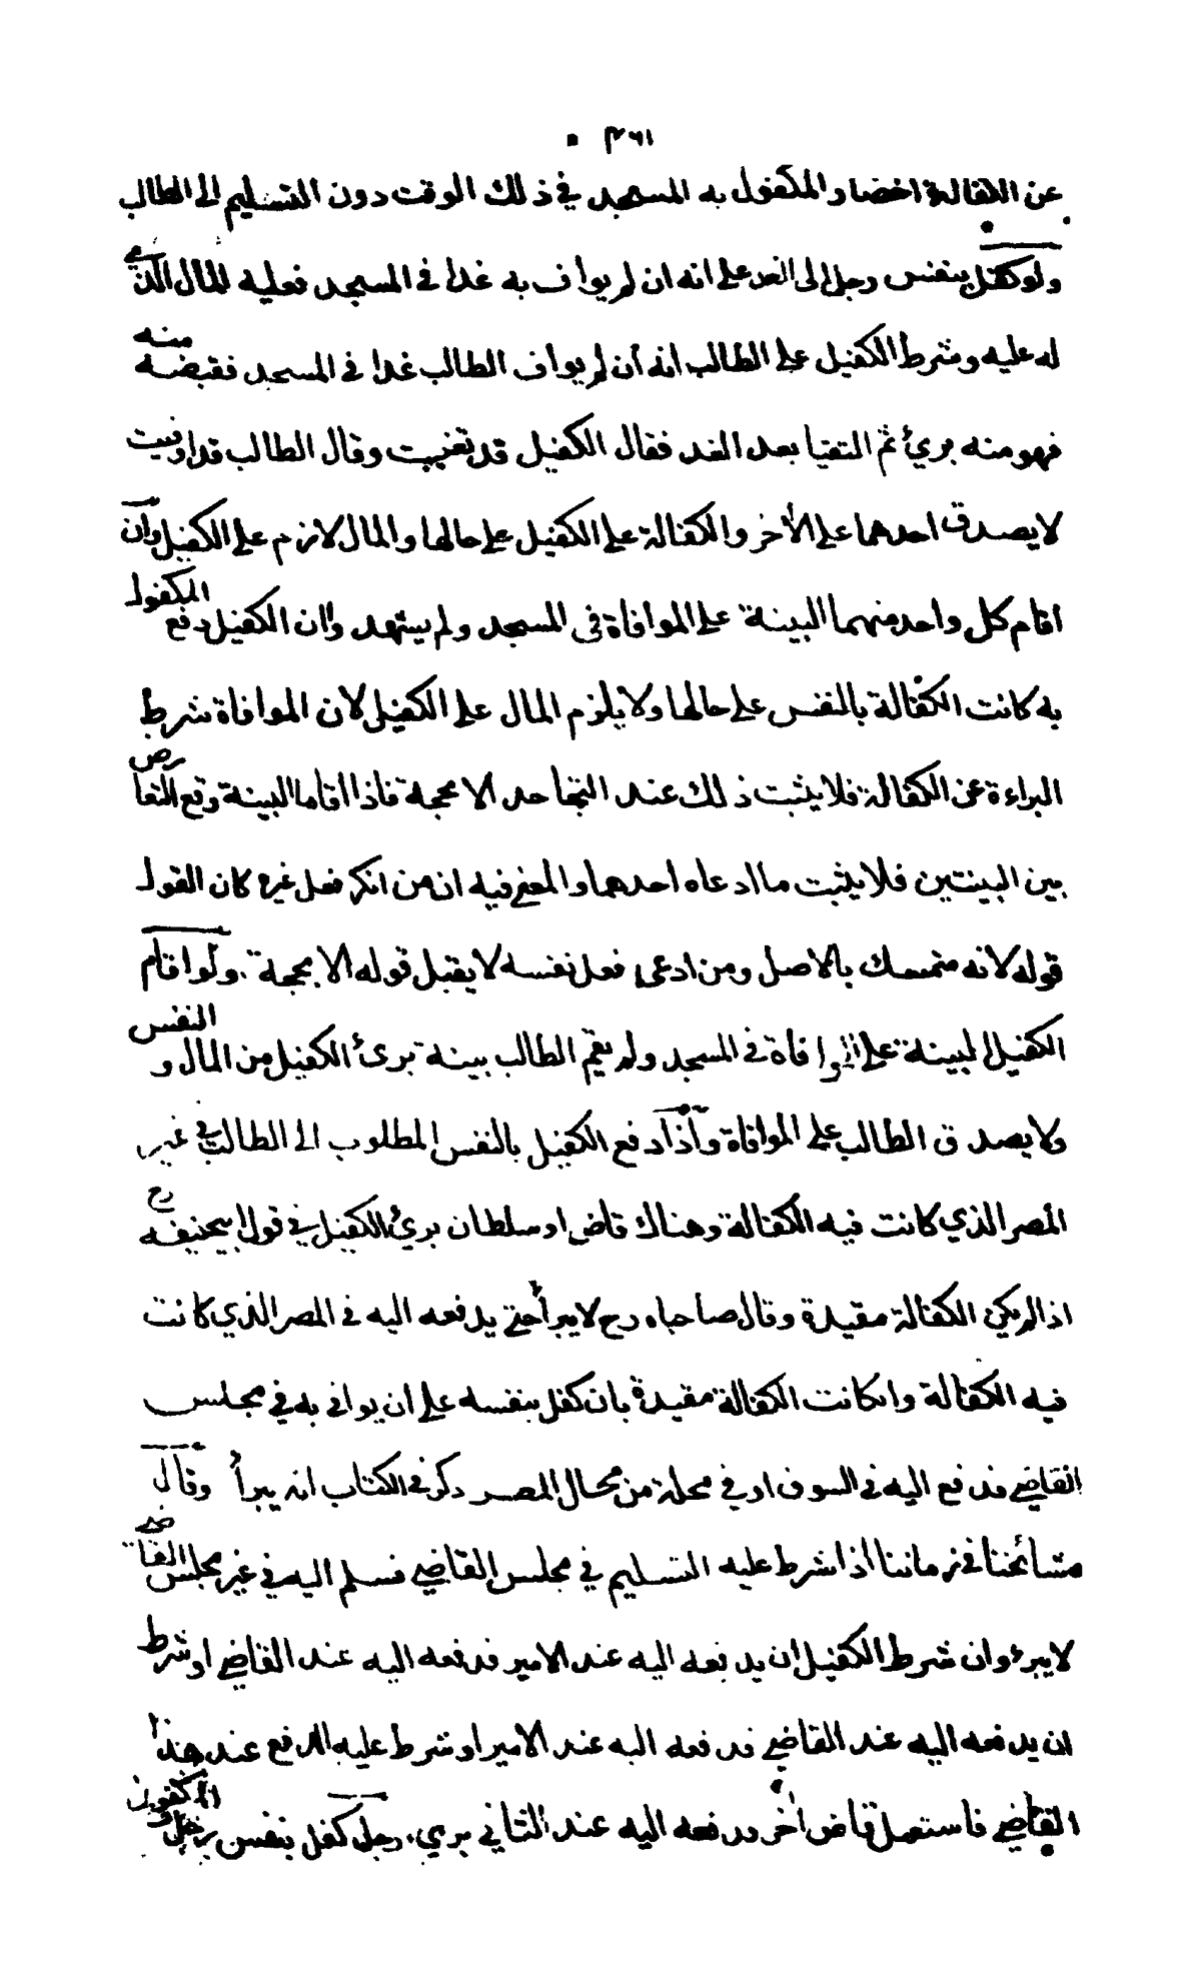 ٤٦١
عن الكفالة احضار المكفول به المسجد في ذلك الوقت دون التسليم الى الطالب
ولو كفل بنفس رجل الى الغد على انه ان لم يواف به غدا فى المسجد فعليه المال الذي
له عليه وشرط الكفيل على الطالب انه ان لم يواف الطالب غدا فى المسجد فقبضه منه
فهو منه بريئ ثم التقيا بعد الغد فقال الكفيل قد تغيبت وقال الطالب قد اوفيت
لا يصدق احدهما على الأخر والكفالة على الكفيل على حالها والمال لازم على الكفيل وان
اقام كل واحد منهما البينة على الموافاة فى المسجد ولم يشهد وان الكفيل دفع المكفول
به كانت الكفالة بالنفس على حالها ولا يلزم المال على الكفيل لان الموافاة شرط
البراءة عن الكفالة فلا يثبت ذلك عند التجاحد الا بحجة فاذا اقاما البينة وقع التعارض
بين البينتين فلا يثبت ما ادعاه احدهما والمعنى فيه ان من انكر فعل غيره كان القول
قوله لانه متمسك بالاصل ومن ادعى فعل نفسه لا يقبل قوله الا بحجة ولو اقام
الكفيل البينة على الموافاة فى المسجد ولم يقم الطالب بينة برئ الكفيل من المال والنفس
ولا يصدق الطالب على الموافاة واذا دفع الكفيل بالنفس المطلوب الى الطالب في غير
المصر الذي كانت فيه الكفالة وهناك قاض او سلطان بريئ الكفيل في قول ابيحنيفه رح
اذا لم يكن الكفالة مقيدة وقال صاحباه رح لا يبرأ حتى يدفعه اليه فى المصر الذي كانت
فيه الكفالة وان كانت الكفالة مقيدة بان كفل بنفسه على ان يوافى به في مجلس
القاضي فدفع اليه فى السوق او في محلة من محال المصر ذكر فى الكتاب انه يبرأ وقال
مشائخنا فى زماننا اذا شرط عليه التسليم في مجلس القاضي فسلم اليه في غير مجلس القاضي
لا يبرء وان شرط الكفيل ان يدفعه اليه عند الامير فدفعه اليه عند القاضي او شرط
ان يدفعه اليه عند القاضي فدفعه اليه عند الامير او شرط عليه الدفع عند هذا
القاضي فاستعمل قاض أخر ودفعه اليه عند الثاني بري، رجل كفل بنفس رجل و